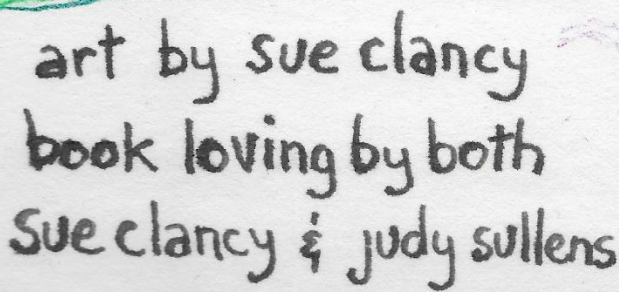 art by sue clancy
book loving by both
sue clancy & judy sullens